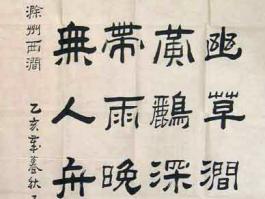 幽草澗
黃鸝深
帶雨晚
無人舟
滁州西澗
乙亥年暮秋